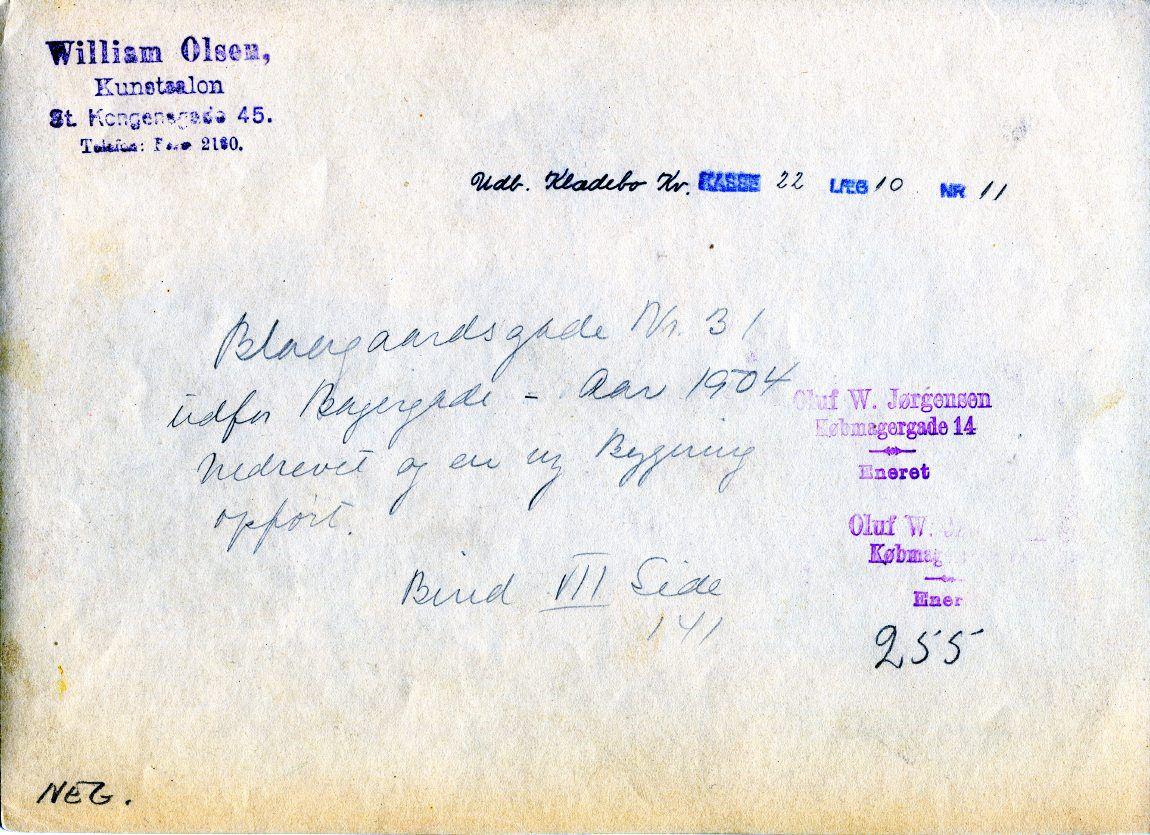 William Olsen,
Kunstsalon
St. Kongensgade 45.
Telefon: 2180.
Udb. Klædebo Kv. KASSE 22 LÆG 10 NR 11
Blaagaardsgade Nr. 31
udfor Bagergade - Aar 1904
nedrevet og en ny Bygning
opført.
Bind VII Side
141
Oluf W. Jørgensen
Købmagergade 14
Eneret
Oluf W. J
Købmag
Ener
255
NEG.